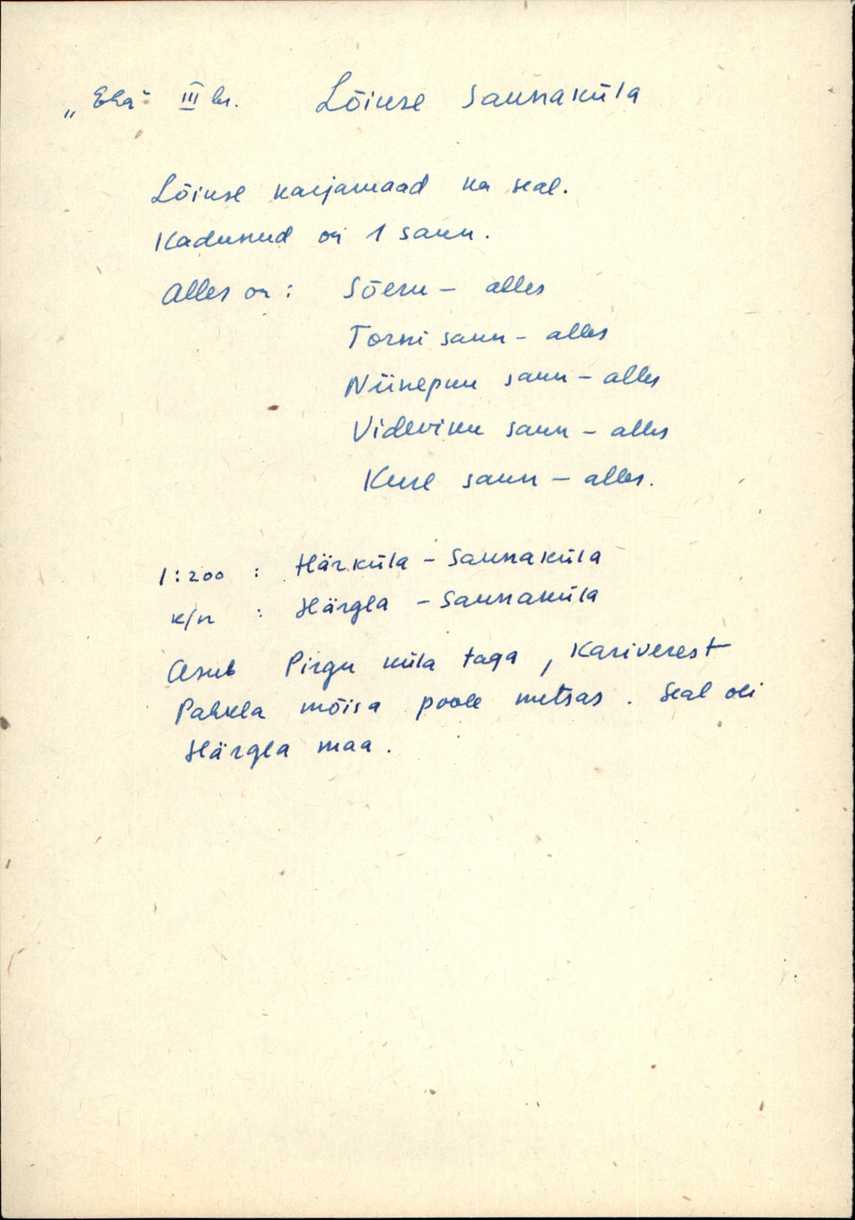 „Eha" III br. Lõiuse Saunaküla
Lõiuse karjamaad ka seal.
Kadunud on 1 saun.
Alles on: Sõeru – alles
Torni saun – alles
Niinepuu saun – alles
Videviku saun – alles
Kuse saun – alles.
1:200 : Härküla – Saunaküla
k/n : Härgla – Saunaküla
Asub Pirgu küla taga, Kariverest
Pahkla mõisa poole metsas. Seal oli
Härgla maa.